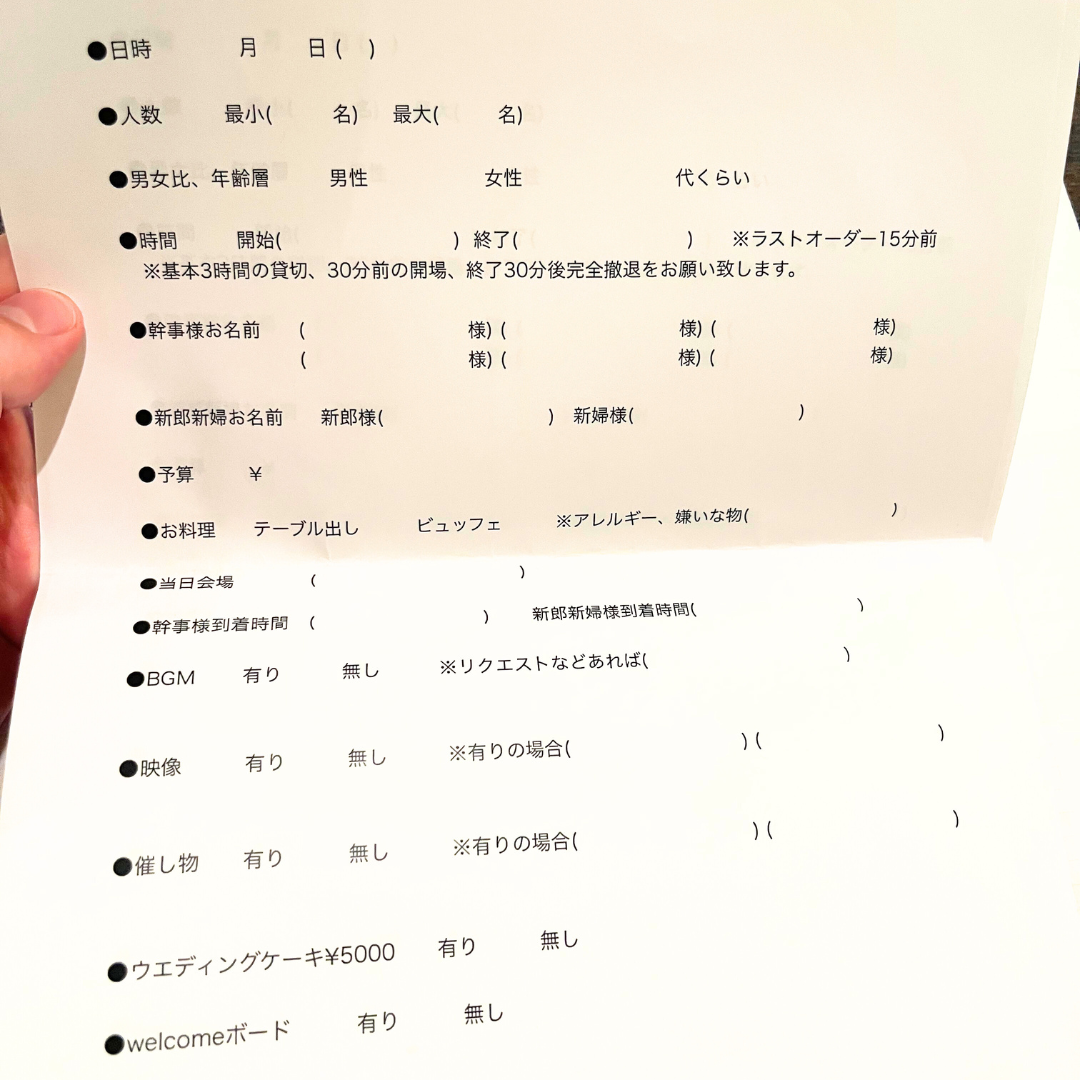 ●日時　月　日(　)
●人数　最小(　名)　最大(　名)
●男女比、年齢層　男性　女性　代くらい
●時間　開始(　)　終了(　)　※ラストオーダー15分前
※基本3時間の貸切、30分前の開場、終了30分後完全撤退をお願い致します。
●幹事様お名前　(　様)(　様)(　様)
(　様)(　様)(　様)
●新郎新婦お名前　新郎様(　)　新婦様(　)
●予算　¥
●お料理　テーブル出し　ビュッフェ　※アレルギー、嫌いな物(　)
●当日会場　(　)
●幹事様到着時間　(　)　新郎新婦様到着時間(　)
●BGM　有り　無し　※リクエストなどあれば(　)
●映像　有り　無し　※有りの場合(　)(　)
●催し物　有り　無し　※有りの場合(　)(　)
●ウエディングケーキ¥5000　有り　無し
●welcomeボード　有り　無し